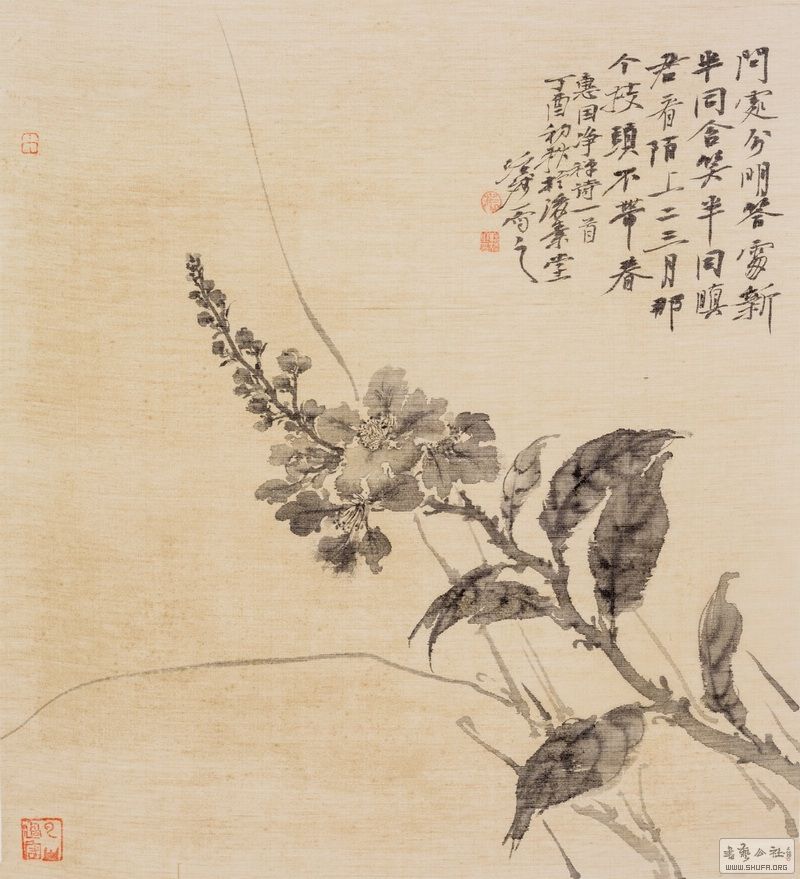 問處分明答處新
半同含笑半同瞋
君看陌上二三月那
个枝頭不帶春
惠因净禅詩一首
丁酉初秋於素堂
書藝公社
WWW.SHUFA.ORG